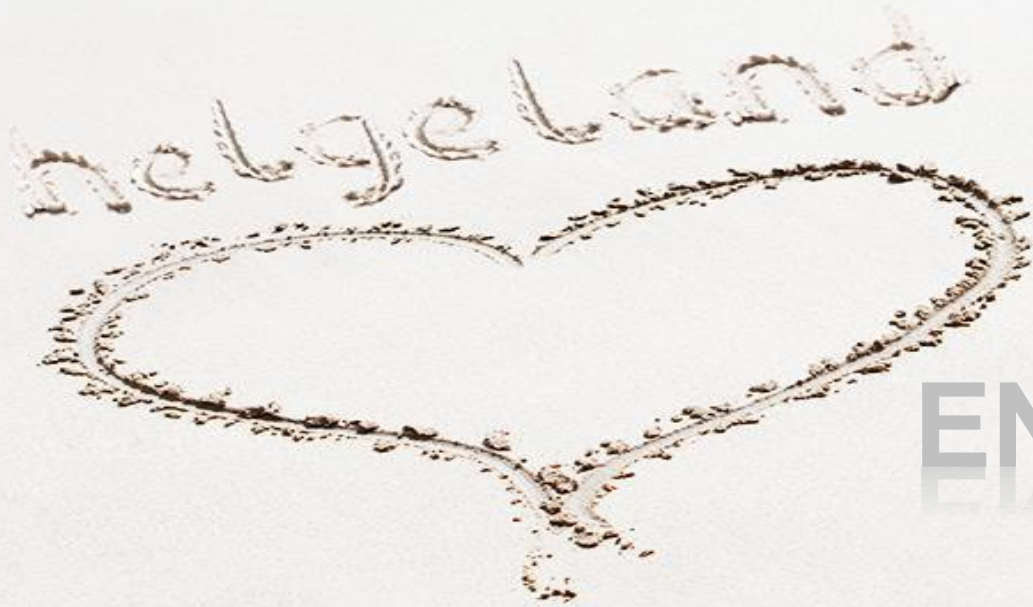 helgeland
EN